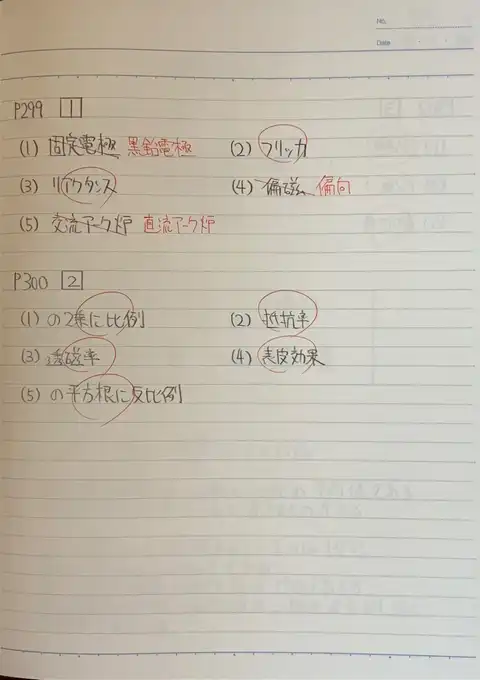 No.
Date
P299 1
(1) 固定電極 黒鉛電極 (2) フリッカ
(3) リアクタンス (4) 偏磁 偏向
(5) 交流アーク炉 直流アーク炉
P300 2
(1) の2乗に比例 (2) 抵抗率
(3) 透磁率 (4) 表皮効果
(5) の平方根に反比例